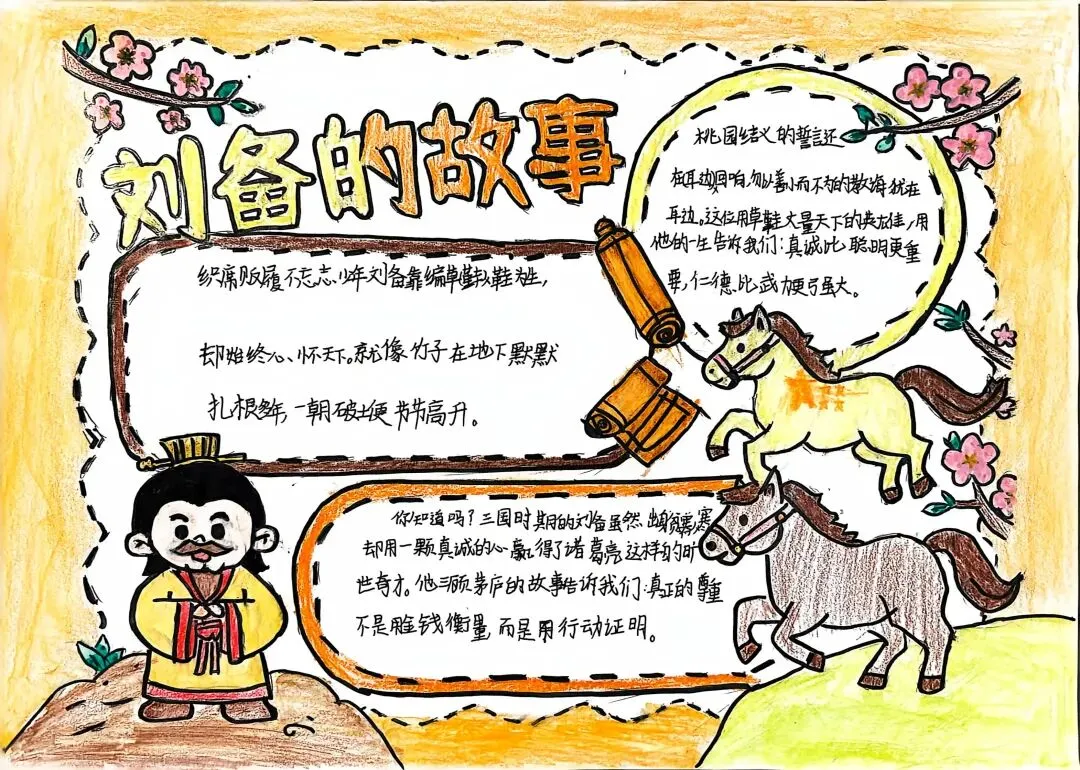 刘备的故事
织席贩履不忘志,少年刘备靠编草鞋为生,
却始终心怀天下。就像竹子在地下默默
扎根多年,一朝破土便节节高升。
桃园结义的誓言还
在耳边回响,勿以善小而不为的教诲犹在
耳边。这位用草鞋丈量天下的英雄,用
他的一生告诉我们:真诚比聪明更重
要,仁德比武力更强大。
你知道吗?三国时期的刘备虽然出身寒
却用一颗真诚的心赢得了诸葛亮这样的旷
世奇才。他三顾茅庐的故事告诉我们:真正的尊重
不是用金钱衡量,而是用行动证明。